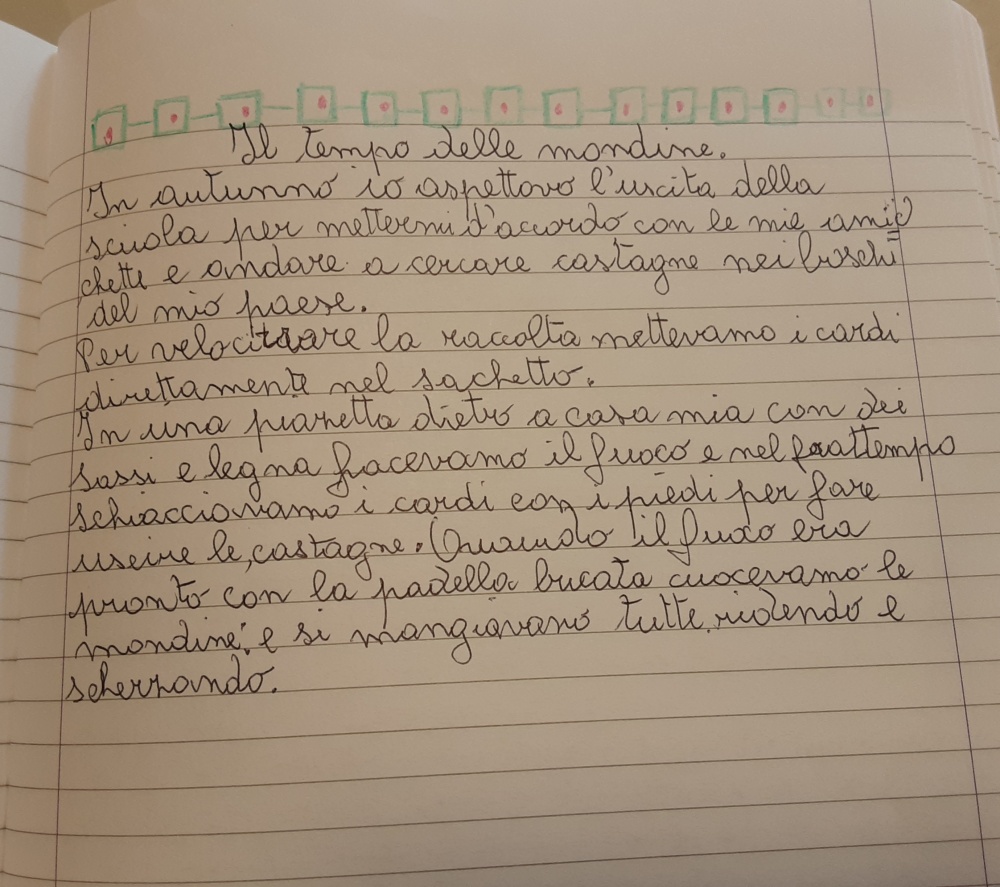 Il tempo delle mondine.
In autunno io aspettavo l'uscita della
scuola per mettermi d'accordo con le mie ami=
chette e andare a cercare castagne nei boschi
del mio paese.
Per velocizzare la raccolta mettevamo i cardi
direttamente nel sachetto.
In una pianetta dietro a casa mia con dei
sassi e legna facevamo il fuoco e nel frattempo
schiacciavamo i cardi con i piedi per fare
uscire le castagne. Quando il fuoco era
pronto con la padella bucata cuocevamo le
mondine, e si mangiavano tutte ridendo e
scherzando.